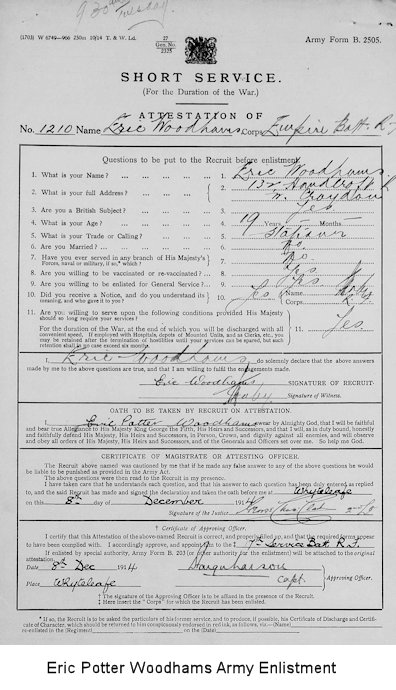 9.30am
Tuesday
(1703) W 6749—966 250m 10/14 T. & W. Ld. 27 Gen. No. 2325 Army Form B. 2505.
SHORT SERVICE.
(For the Duration of the War.)
ATTESTATION OF
No. 1210 Name Eric Woodhams Corps Empire Batt. R.
Questions to be put to the Recruit before enlistment.
1. What is your Name? ... ... ... 1. Eric Woodhams
2. What is your full Address? ... ... 2. 132
W. Croydon
3. Are you a British Subject? ... ... 3. Yes
4. What is your Age? ... ... ... 4. 19 Years — Months
5. What is your Trade or Calling? ... ... 5.
6. Are you Married? ... ... ... 6. No.
7. Have you ever served in any branch of His Majesty's Forces, naval or military, if so,* which? 7. No.
8. Are you willing to be vaccinated or re-vaccinated? ... 8. Yes
9. Are you willing to be enlisted for General Service? 9. Yes
10. Did you receive a Notice, and do you understand its meaning, and who gave it to you? 10. Yes Name Corps
11. Are you willing to serve upon the following conditions provided His Majesty should so long require your services?
For the duration of the War, at the end of which you will be discharged with all
convenient speed. If employed with Hospitals, depots of Mounted Units, and as Clerks, etc., you
may be retained after the termination of hostilities until your services can be spared, but such
retention shall in no case exceed six months.
11. Yes.
I, Eric Woodhams, do solemnly declare that the above answers
made by me to the above questions are true, and that I am willing to fulfil the engagements made.
Eric Woodhams SIGNATURE OF RECRUIT.
Signature of Witness.
OATH TO BE TAKEN BY RECRUIT ON ATTESTATION.
I, Eric Potter Woodhams swear by Almighty God, that I will be faithful
and bear true Allegiance to His Majesty King George the Fifth, His Heirs and Successors, and that I will, as in duty bound, honestly
and faithfully defend His Majesty, His Heirs and Successors, in Person, Crown, and dignity against all enemies, and will observe
and obey all orders of His Majesty, His Heirs and Successors, and of the Generals and Officers set over me. So help me God.
CERTIFICATE OF MAGISTRATE OR ATTESTING OFFICER.
The Recruit above named was cautioned by me that if he made any false answer to any of the above questions he would
be liable to be punished as provided in the Army Act.
The above questions were then read to the Recruit in my presence.
I have taken care that he understands each question, and that his answer to each question has been duly entered as replied
to, and the said Recruit has made and signed the declaration and taken the oath before me at Whyteleafe
on this 8th day of December 1914
Signature of the Justice
† Certificate of Approving Officer.
I certify that this Attestation of the above-named Recruit is correct, and properly filled up, and that the required forms appear
to have been complied with. I accordingly approve, and appoint him to the ‡ Service Bat. R.F.
If enlisted by special authority, Army Form B. 203 (or other authority for the enlistment) will be attached to the original
attestation.
Date 8th Dec 1914 Farquharson
Capt. Approving Officer.
Place Whyteleafe
† The signature of the Approving Officer is to be affixed in the presence of the Recruit.
‡ Here insert the "Corps" for which the Recruit has been enlisted.
* If so, the Recruit is to be asked the particulars of his former service, and to produce, if possible, his Certificate of Discharge and Certifi-
cate of Character, which should be returned to him conspicuously endorsed in red ink, as follows, viz.—(Name)
re-enlisted in the (Regiment) on the (Date)
Eric Potter Woodhams Army Enlistment